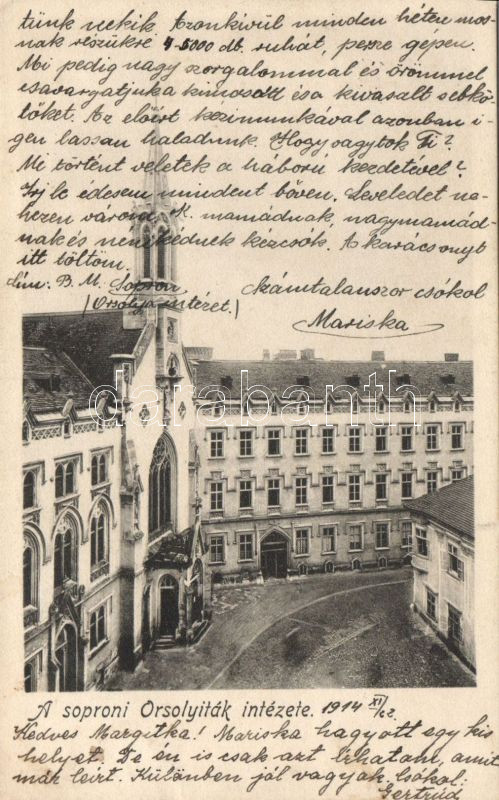 tünk nekik. Azonkivül minden héten mos-
nak részükre 4-5000 db. ruhát, persze gépen.
Mi pedig nagy szorgalommal és örömmel
csavargatjuk a kimosott és a kivasalt zsebkö-
lőket. Az előirt kézimunkával azonban i-
gen lassan haladunk. Hogy vagytok Ti?
Mi történt veletek a háború kezdetével?
Irj le edesem mindent bőven. Leveledet ne-
hezen várom. K. mamádnak, nagymamád-
nak és nénikédnek kézcsók. A karácsonyt
itt töltöm.
Cim: B. M. Sopron
(Orsolya intézet.)
számtalanszor csókol
Mariska
darabanth
A soproni Orsolyiták intézete. 1914 XI/22.
Kedves Margitka! Mariska hagyott egy kis
helyet. De én is csak azt irhatom, amit
már leirt. Különben jól vagyok. Csókol:
Gertrúd